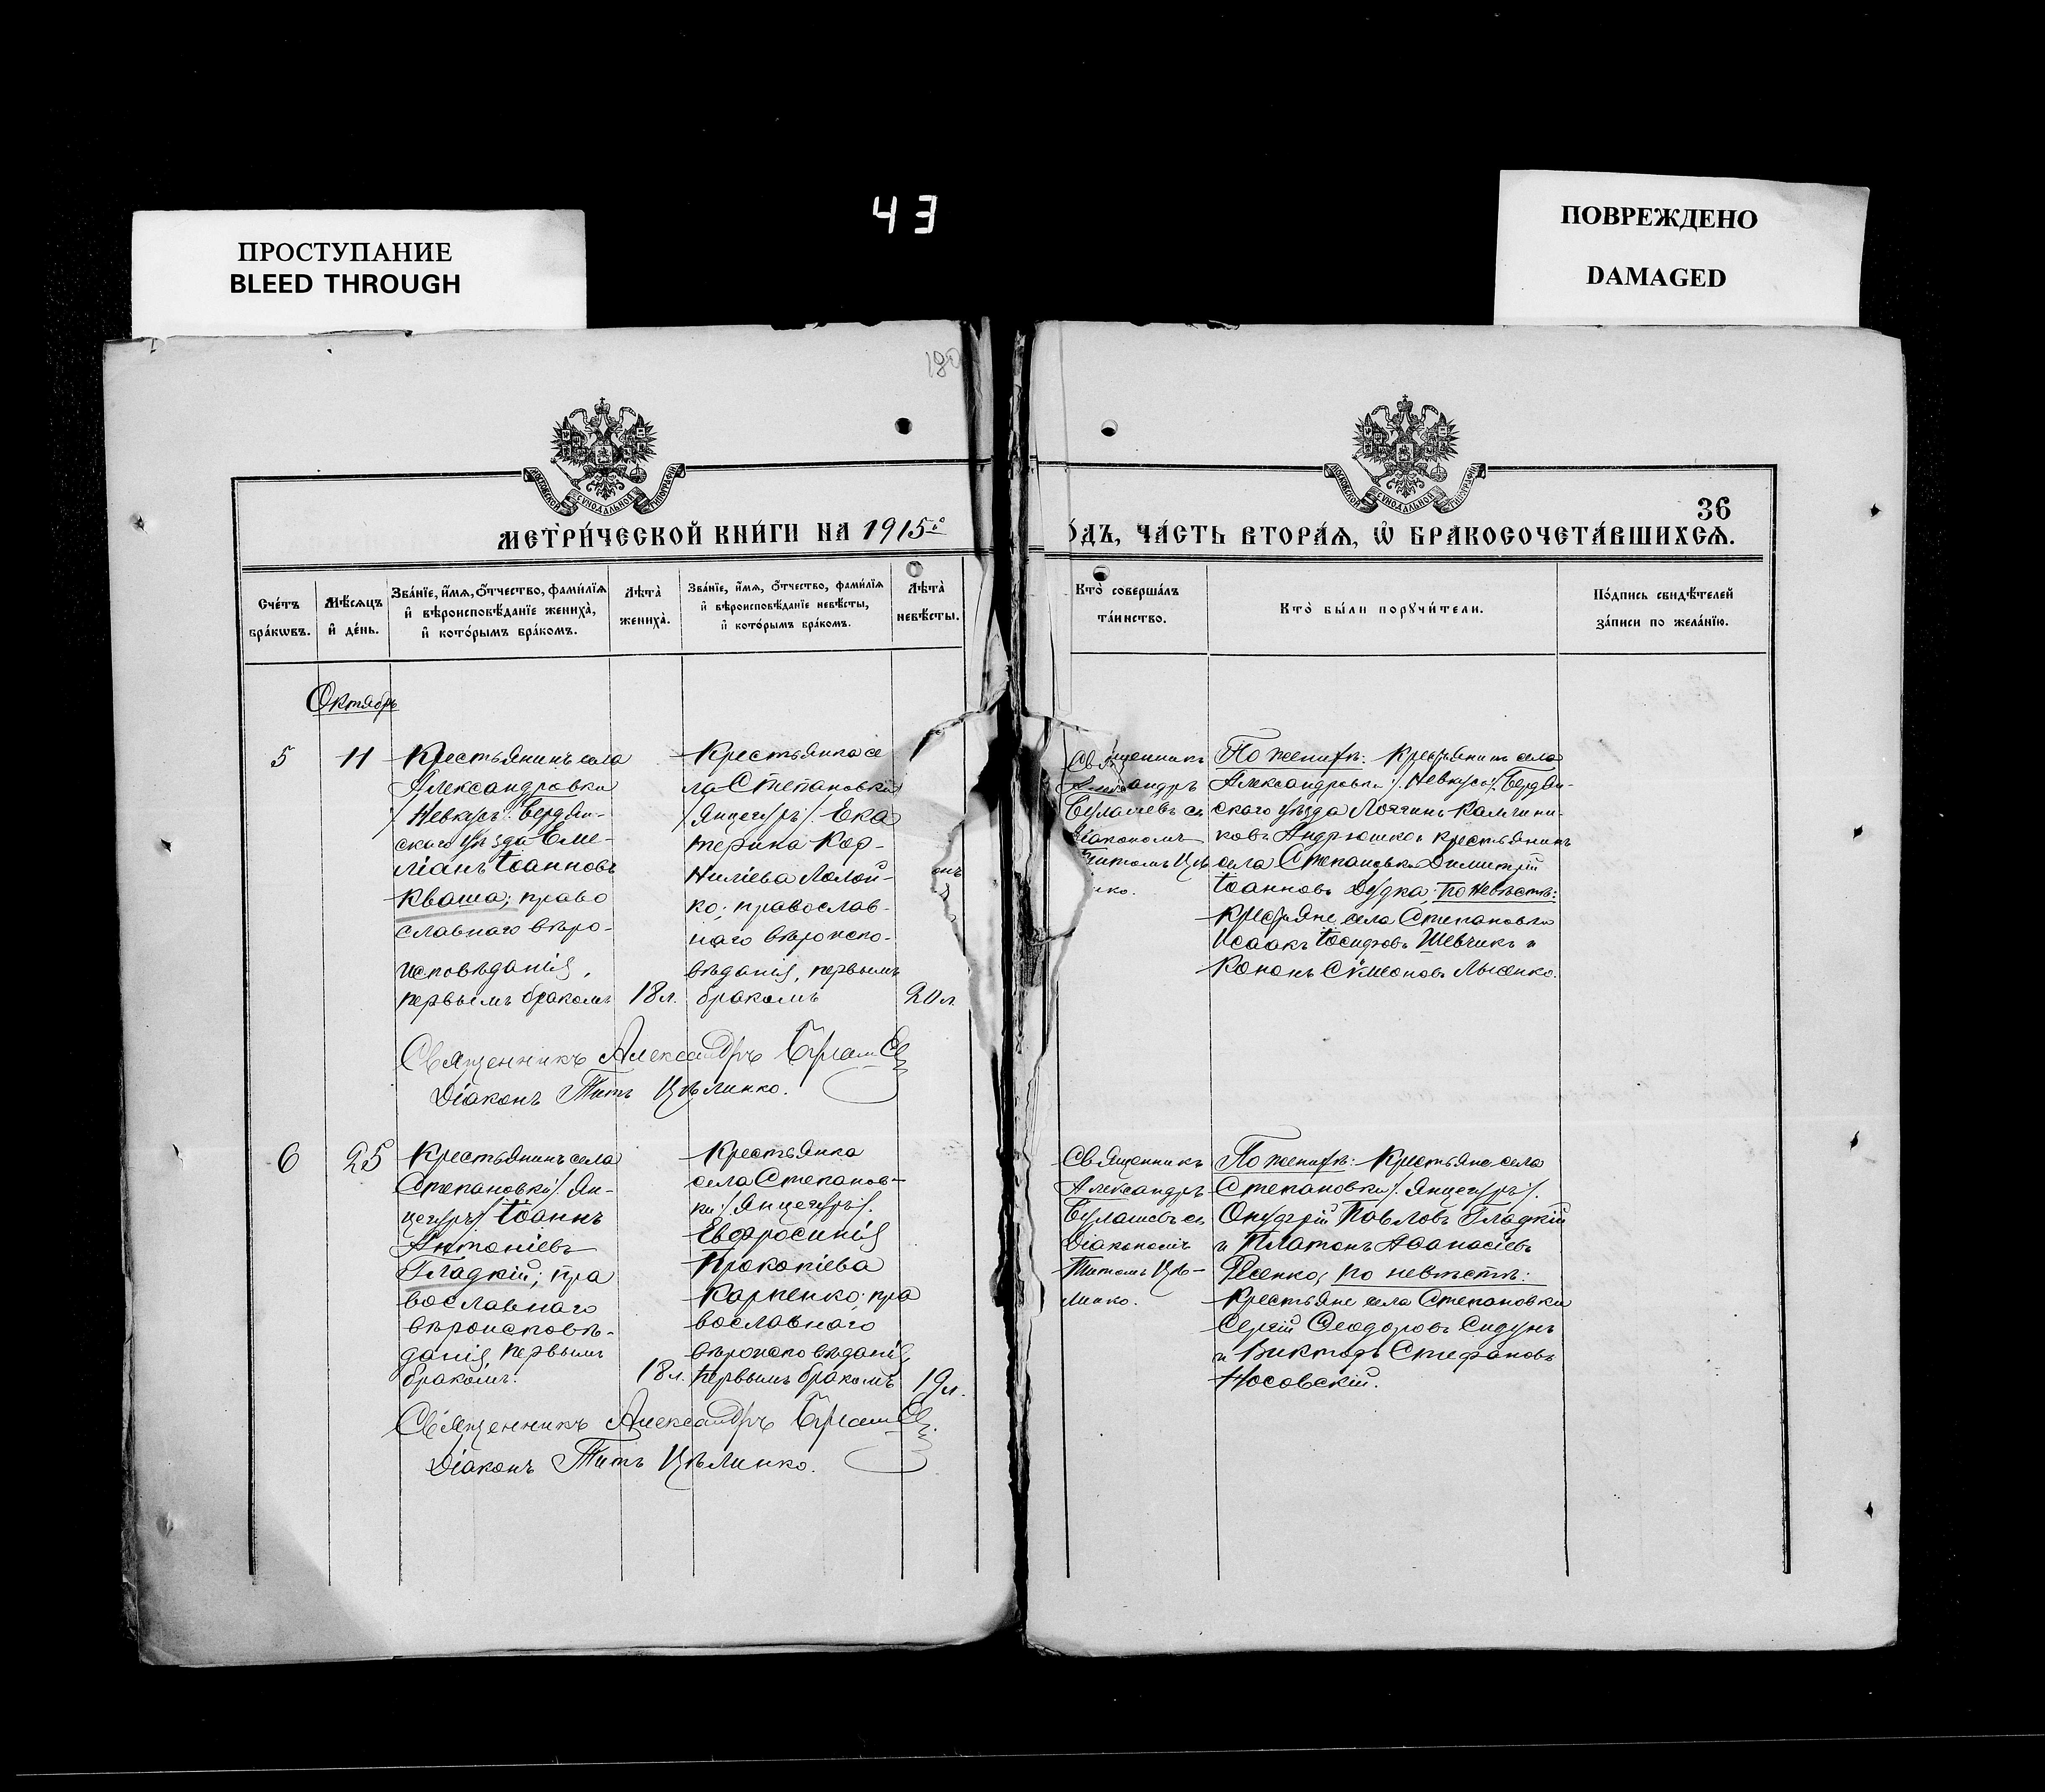 43
ПРОСТУПАНИЕ
BLEED THROUGH
ПОВРЕЖДЕНО
DAMAGED
180
МОСКОВСКОЙ СѴНОДАЛЬНОЙ ТИПОГРАФІИ
МОСКОВСКОЙ СѴНОДАЛЬНОЙ ТИПОГРАФІИ
36
МЕТРИ́ЧЕСКОЙ КНИ́ГИ НА 1915 г
О́ДЪ, ЧА́СТЬ ВТОРА́Ѧ, Ѡ҆ БРАКОСОЧЕТА́ВШИХСѦ.
Сче́тъ
бра́кѡвъ.
Мѣ́сѧцъ
и҆ де́нь.
Зва́нїе, и҆́мѧ, ѻ҆́тчество, фами́лїѧ
и҆ вѣроисповѣ́данїе жениха̀,
и҆ кото́рымъ бра́комъ.
Лѣ́та̀
жениха̀.
Зва́нїе, и҆́мѧ, ѻ҆́тчество, фами́лїѧ
и҆ вѣроисповѣ́данїе невѣ́сты,
и҆ кото́рымъ бра́комъ.
Лѣ́та̀
невѣ́сты.
Кто̀ соверша́лъ
та́инство.
Кто̀ бы́ли порꙋчи́тели.
По́дпись свидѣ́телей
за́писи по жела́нїю.
Октябрь
5
11
Крестьянинъ села
Александровки
/Невкусъ/ Бердян-
скаго уѣзда Еме-
ліанъ Іоанновъ
Кваша; право
славнаго вѣро-
исповѣданія,
первымъ бракомъ
18 л.
Крестьянка се
ла Степановки
/Янцегуръ/. Ека
терина Кор-
ниліева Лолой-
ко; православ-
наго вѣроиспо-
вѣданія, первымъ
бракомъ
20 л.
Священникъ
Александръ
Булашевъ съ
діакономъ
Титомъ Цѣ
нко.
По женихѣ: крестьянинъ села
Александровки /Невкусъ/. Бердян-
скаго уѣзда Логгинъ Каллини-
ковъ Андрюшко и крестьянинъ
села Степановки Димитрій
Іоанновъ Дудка; по невѣстѣ:
крестьяне села Степановки
Исаакъ Іосифовъ Шевчикъ и
Кононъ Симеоновъ Лысенко.
Священникъ Александръ Булашевъ
Діаконъ Титъ Цѣлинко.
6
25
Крестьянинъ села
Степановки /. Ян-
цегуръ/ Іоаннъ
Антоніевъ
Гладкій; пра
вославнаго
вѣроисповѣ-
данія, первымъ
бракомъ.
18 л.
Крестьянка
села Степанов-
ки /. Янцегуръ/.
Евфросинія
Прокопіева
Карпенко; пра
вославнаго
вѣроисповѣданія,
первымъ бракомъ
19 л.
Священникъ
Александръ
Булашевъ съ
Діакономъ
Титомъ Цѣ-
линко.
По женихѣ: Крестьяне села
Степановки /. Янцегуръ/.
Онуфрій Павловъ Гладкій
и Платонъ Аѳанасіевъ
по невѣстѣ:
Крестьяне села Степановки
Сергій Ѳеодоровъ Сидунъ
и Викторъ Стефановъ
Носовскій.
Священникъ Александръ Булашевъ
Діаконъ Титъ Цѣлинко.